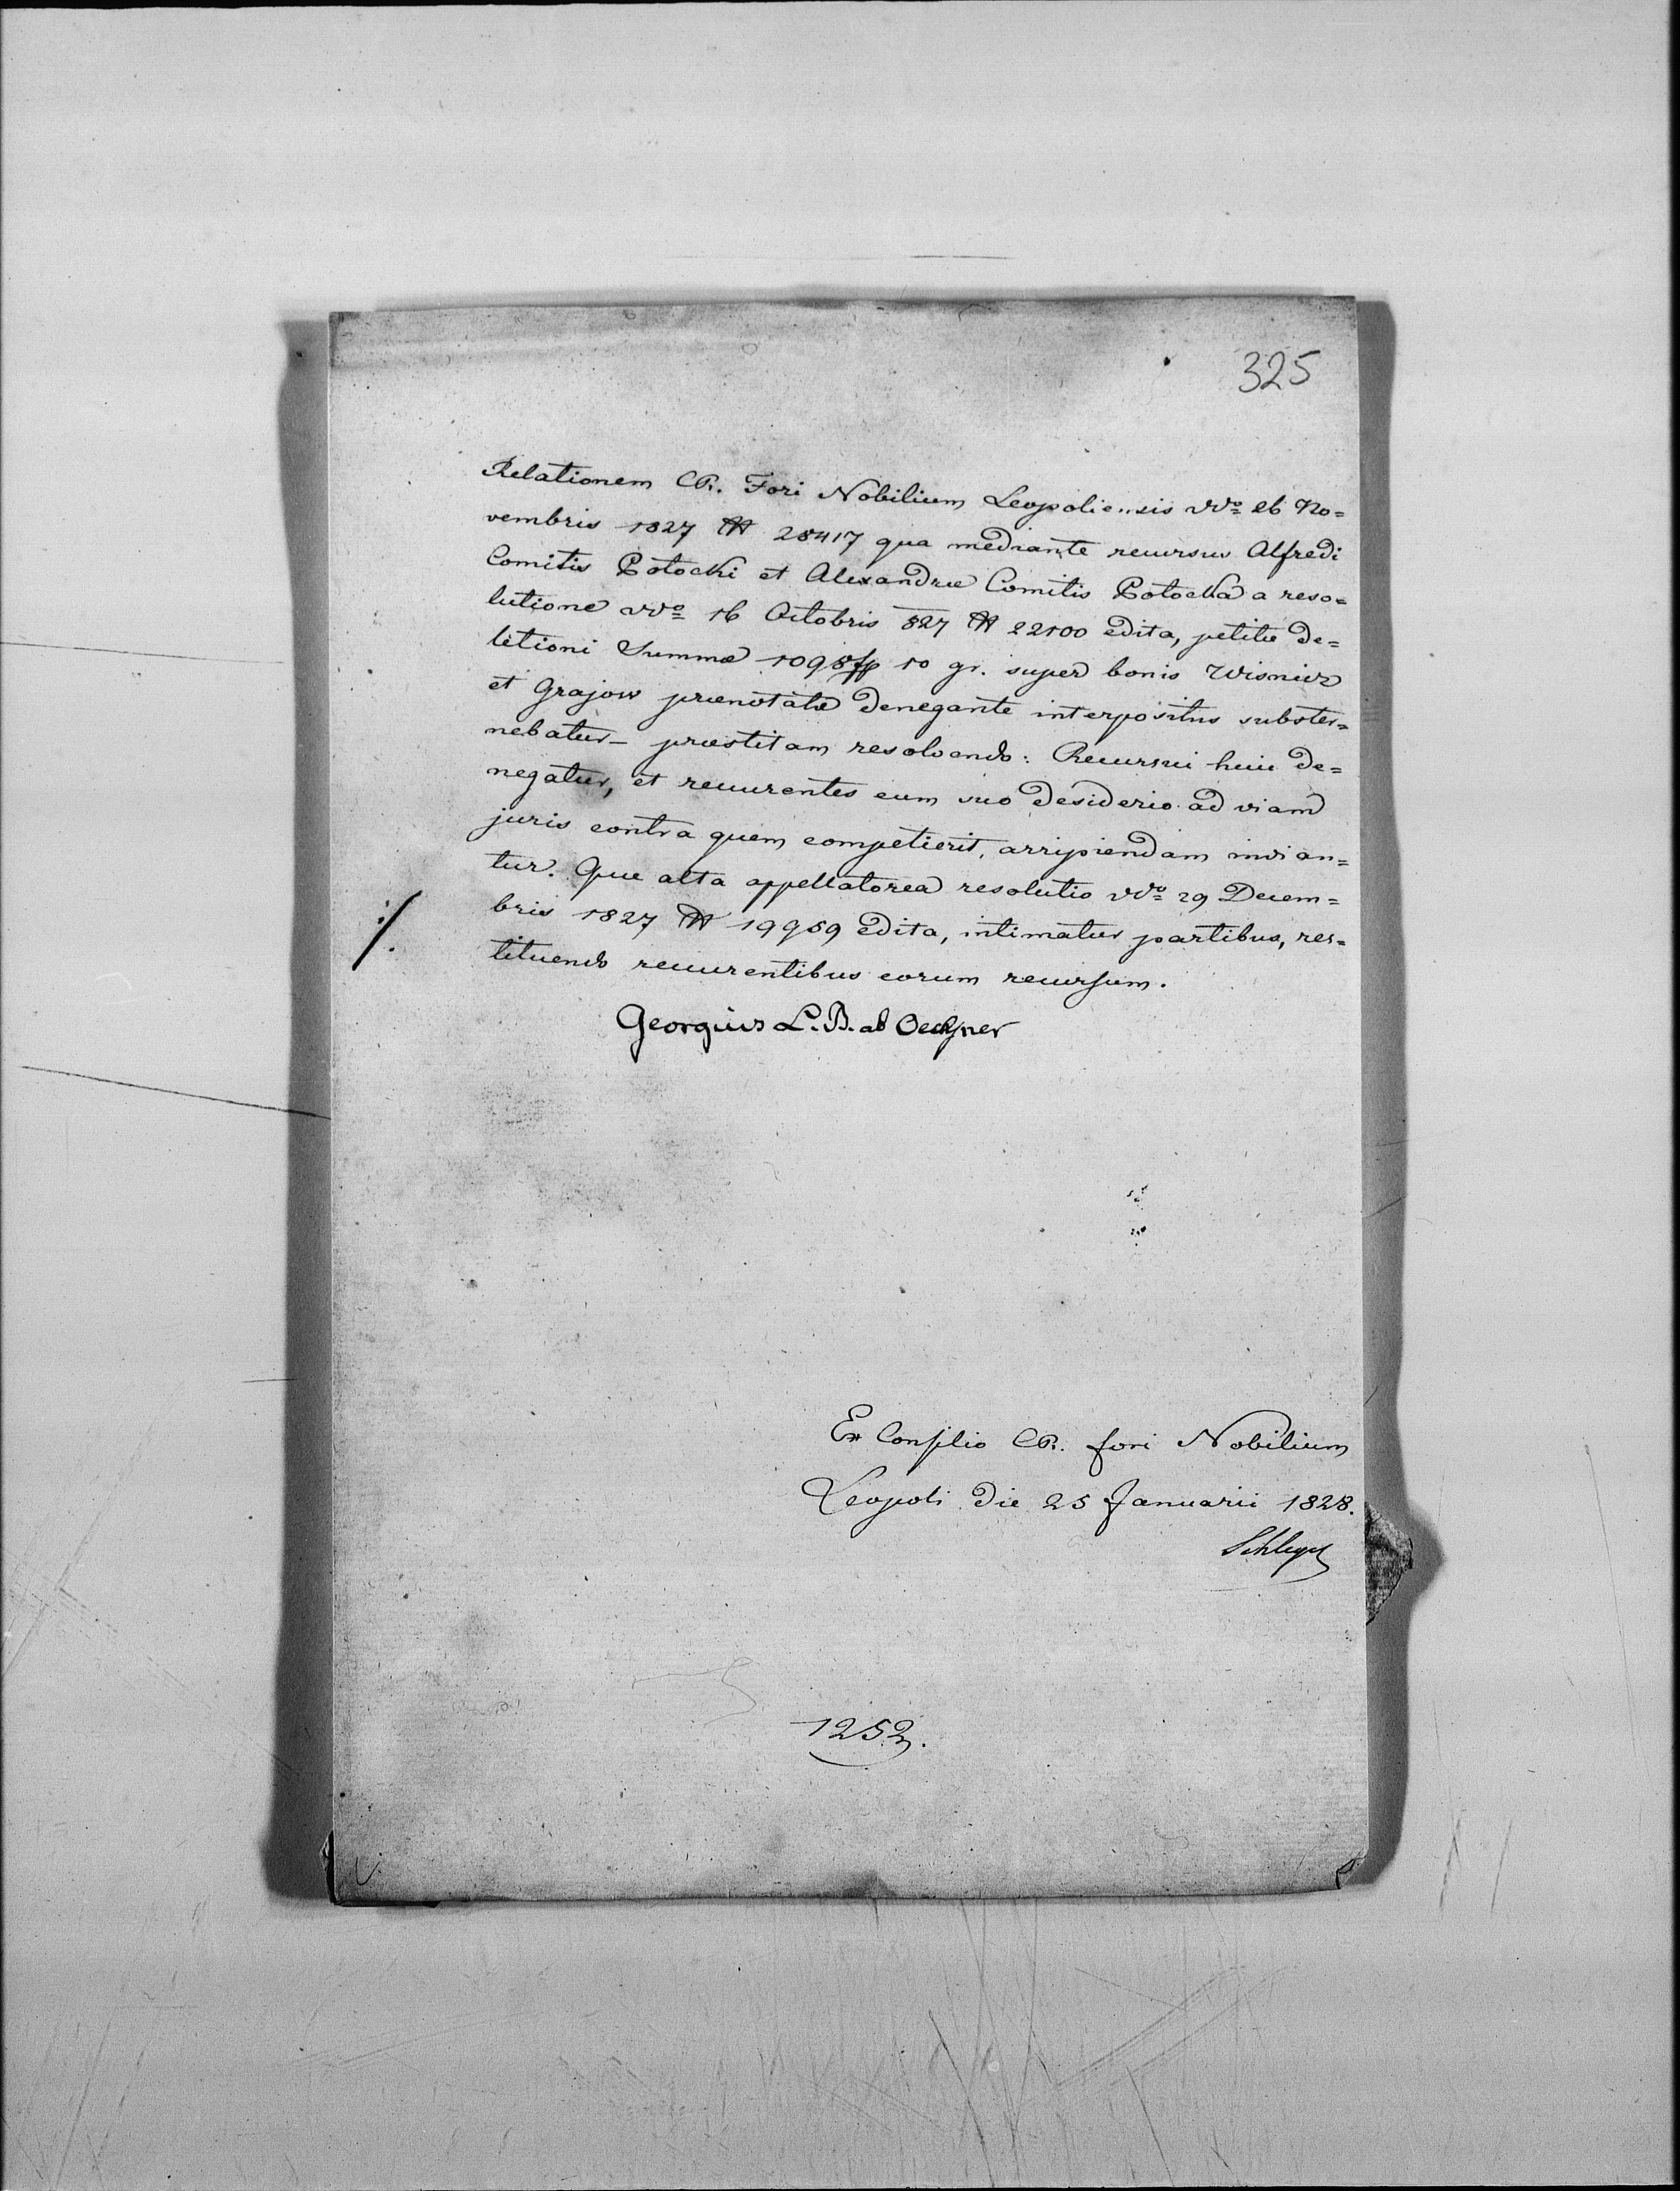 325
Relationem CR. Fori Nobilium Leopoliensis ddo 26 No=
vembris 1827 N 28417 qua mediante recursus Alfredi
Comitis Potocki et Alexandræ Comitis Potocka a reso=
lutione ddo 16 Octobris 827 N 22100 edita, petitæ de=
letioni Summæ 1095 fp 10 gr. super bonis Wisnicz
et Grajow prænotatæ denegante interpositus subster=
nebatur – præstitam resolvendo: Recursui huic de=
negatur, et recurrentes cum suo desiderio ad viam
juris contra quem competierit, arripiendam invian=
tur. Quæ alta appellatorea resolutio ddo 29 Decem=
bris 1827 N 19959 edita, intimatur partibus, res=
tituendo recurrentibus eorum recursum.
Georgius L. B. ab Oechsner
Ex Consilio CR. fori Nobilium
Leopoli die 25 Januarii 1828.
Schlegel
1252.